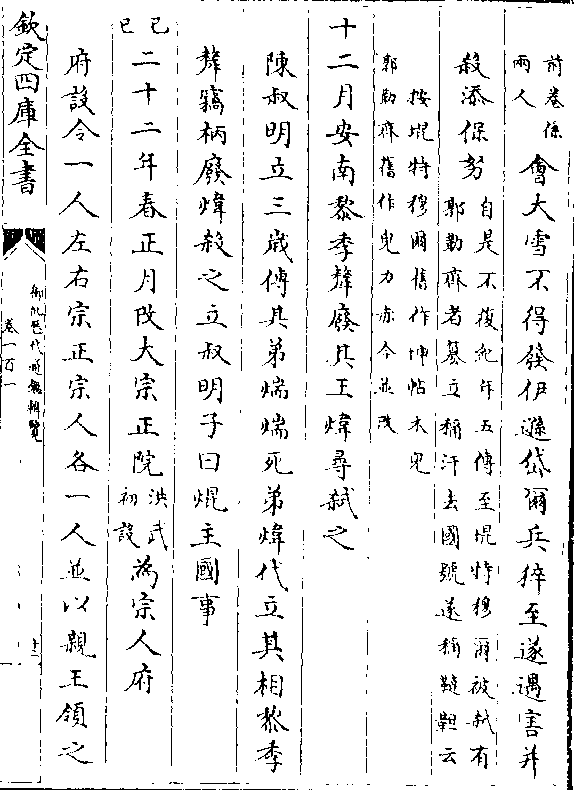 前卷係
兩人
會大雪不得發伊遜岱爾兵猝至遂遇害并
殺添保努
自是不復紀年五傳至堒特穆爾被弑有
郭勒齊者篡立稱汗去國號遂稱韃靼云
按堒特穆爾舊作坤帖木兒
郭勒齊舊作鬼力赤今並改
十二月安南黎季犛廢其王煒尋弑之
陳叔明立三歲傳其弟煓煓死弟煒代立其相黎季
犛竊柄廢煒殺之立叔明子日焜主國事
己巳
二十二年春正月改大宗正院
洪武
初設
為宗人府
府設令一人左右宗正宗人各一人並以親王領之
欽定四庫全書
御批歷代通鑑輯覽
卷一百一